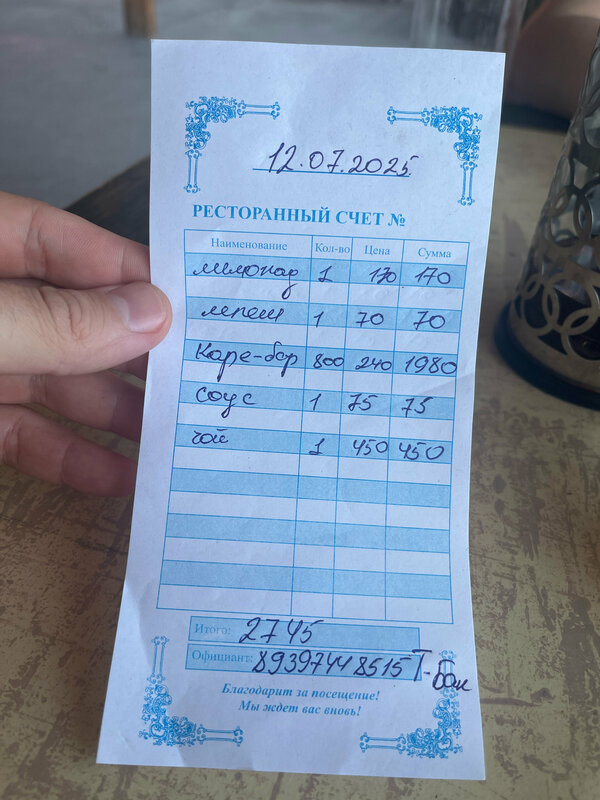 12.07.2025
РЕСТОРАННЫЙ СЧЕТ №
Наименование Кол-во Цена Сумма
лимонад 1 170 170
лепеш 1 70 70
Каре-бар 800 240 1980
соус 1 75 75
чай 1 450 450
Итого: 2745
Официант: 89397448515 Т-Бан
Благодарит за посещение!
Мы ждет вас вновь!